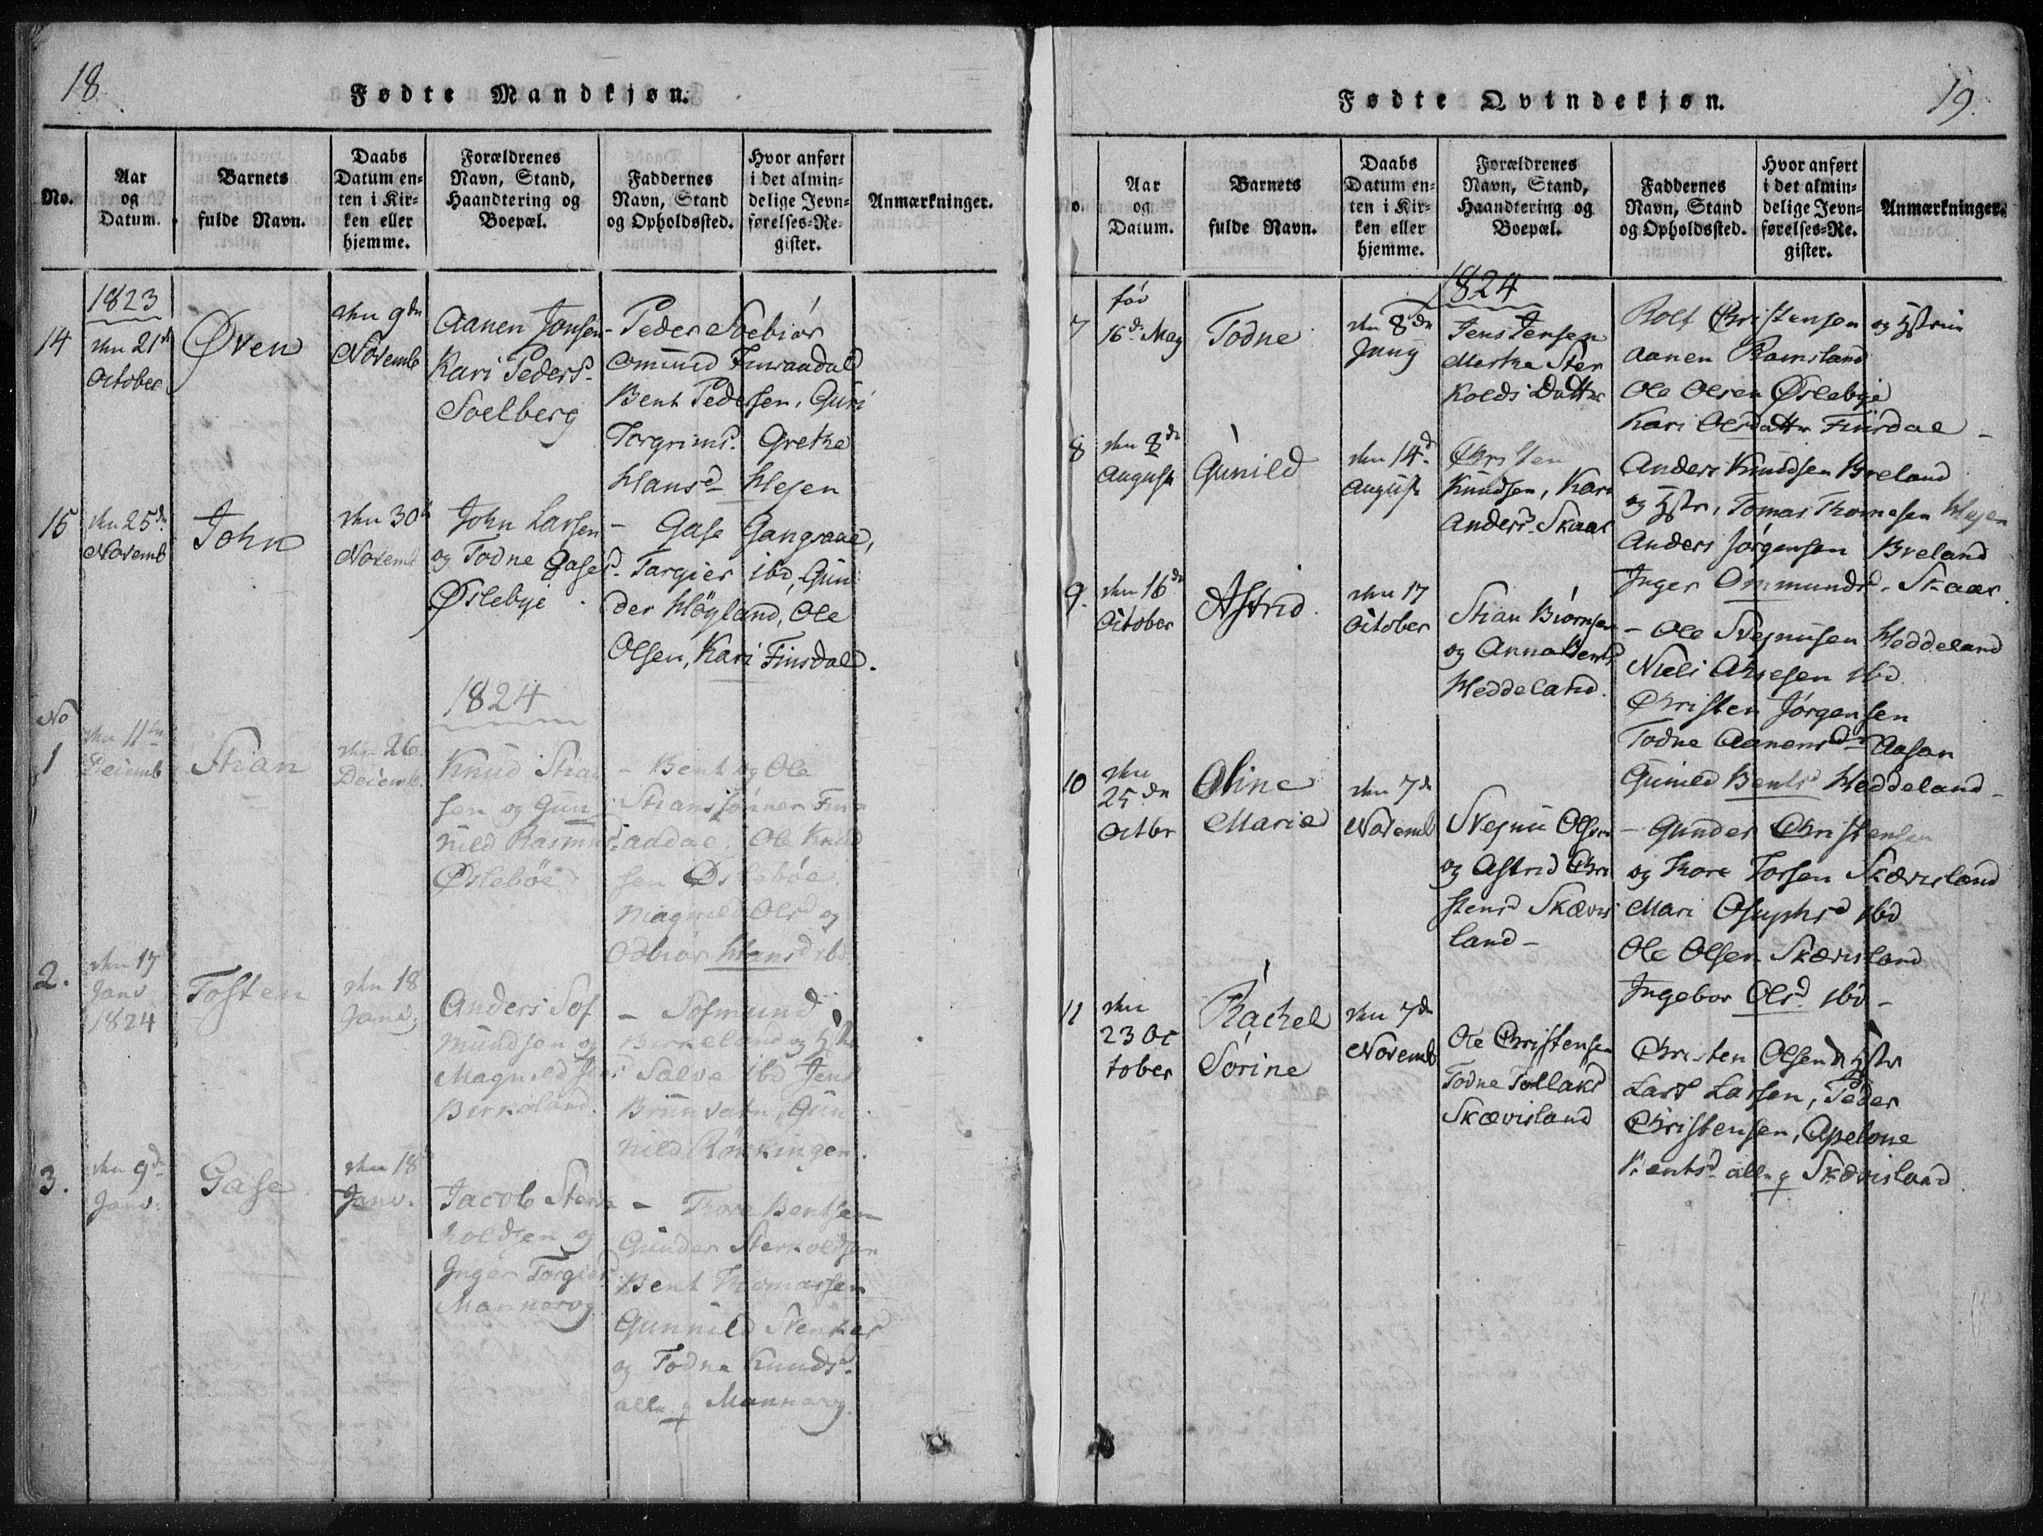 18.
Fødte Mandkjøn.
No.
Aar og Datum.
Barnets fulde Navn.
Daabs Datum enten i Kirken eller hjemme.
Forældrenes Navn, Stand, Haandtering og Boepæl.
Faddernes Navn, Stand og Opholdssted.
Hvor anført i det almindelige Jevnførelses-Register.
Anmærkninger.
1823
14
den 21d
October
Øven
den 9dn
Novemb
Aanen Jonsen
Kari Pedersd
Soelberg
Peder Solbiør
Omund
Bent Pedersen, Guri
Torgrimsd. Grethe
Hansd Hejen
15
den 25dn
Novemb
John
den 30d
Novemb
John Larsen
og Todne Gasesd
Øslebye
Gase Gangsaae,
Targier ibd, Gun
der Høgland, Ole
Olsen, Kari Finsdald.
1824
No
1
den 11dn
Decemb
Stian
den 26
Decemb.
Knud Stian
sen og Gun
nild Rasmusd
Øslebøe
Bent og Ole
Stianssønner Fin
andal, Ole Knud
sen Øslebøe.
Magnild Olsd og
Odbiør Hansd ibd
2.
den 17
Janv
1824
Tosten
den 18
Janv.
Anders Sof
mundsen og
Magnild Jensd
Birkeland.
Sofmund
Birkeland og Hstr
Salve ibd Jens
Brunvatn, Gun
nild Rønkingen.
3.
den 9dn
Janv.
Gase
den 18
Janv.
Jacob Sterk
koldsen og
Inger Torgiersd
Mannerog
Thore Bentsen
Gunder Sterkoldsen
Bent Thomassen
Gunnild
og Todne Knudsd.
alle q Mannerog
19.
Fødte Qvindekjøn.
No.
Aar og Datum.
Barnets fulde Navn.
Daabs Datum enten i Kirken eller hjemme.
Forældrenes Navn, Stand, Haandtering og Boepæl.
Faddernes Navn, Stand og Opholdssted.
Hvor anført i det almindelige Jevnførelses-Re.gister.
Anmærkninger.
1824
7
fød
16d. May
Todne
den 8dn
Juny
Jens Jensen
Merthe Ster
kolds Datter
Rolf Christensen og Hstrue
Aanen Ramsland
Ole Olsen Øslebye
Kari Olsdattr Finsdal
8
den 8dn
August
Gunild
den 14d
August
Christen
Knudsen, Kari
Andersd. Skaar
Anders Knudsen Breland
og Hstr, Tomas Thomesen Hejen
Anders Jørgensen Breland
Inger Ommundsd. Skaar.
9.
den 16dn
October
Astrid.
den 17
October
Stian Biørnsen
og Anna Bentsd
Heddeland.
Ole Svejnusen Heddeland
Niels Aasesen ibd
Christen Jørgensen
Todne Aanensd Aasan
Gunild Bentsd Heddeland
10
den
25dn
Octbr
Oline
Marie
den 7dn
Novemb
Svejnu Olsen
og Astrid Chri
stensd Skævis
land
Gunder Christensen
og Thore Torsen Skævisland
Mari Osuphsd ibd
Ole Olsen Skævisland
Ingebor Olsd ibd
11
den
23 Oc
tober
Rachel
Sorine
den 7dn
Novemb
Ole Christensen
Todne Tollaksd
Skævisland
Christen Olsen og Hstr
Lars Larsen, Peder
Christensen, Apelone
Bentsd. alle q Skævisland